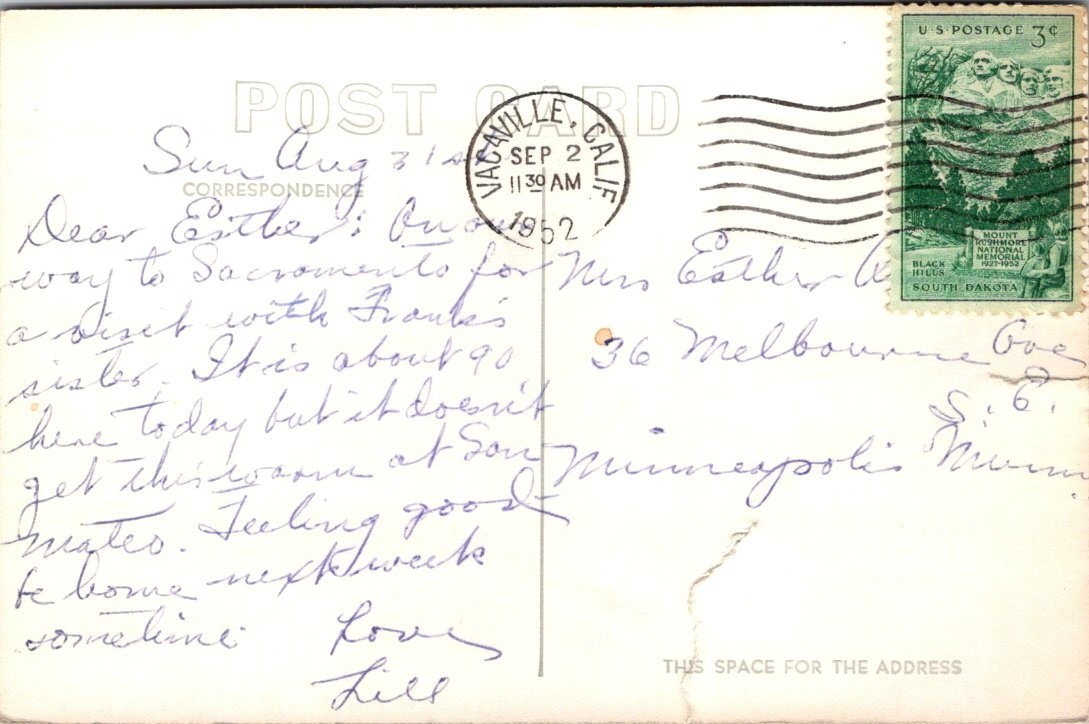 POST CARD
CORRESPONDENCE
Sun Aug 31st
Dear Esther: On our
way to Sacramento for
a visit with Frank's
sister. It is about 90
here today but it doesn't
get this warm at San
Mateo. Feeling good
be home next week
sometime
Love
Lill
VACAVILLE, CALIF
SEP 2
11 30 AM
1952
U·S·POSTAGE 3¢
MOUNT
RUSHMORE
NATIONAL
MEMORIAL
1927-1952
BLACK
HILLS
SOUTH DAKOTA
Mrs Esther
36 Melbourne Ave
S. E.
Minneapolis Minn
THIS SPACE FOR THE ADDRESS